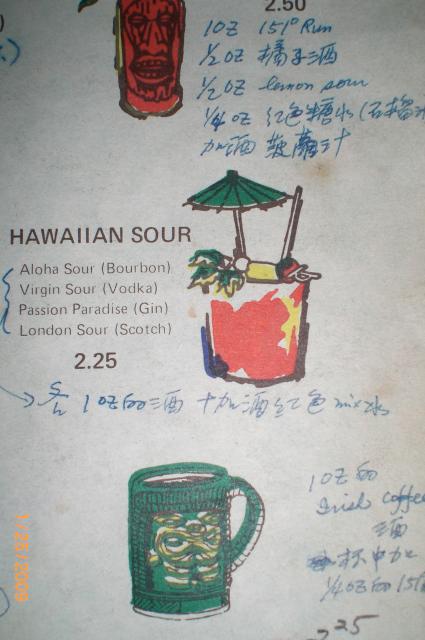 2.50
1oz 151° Rum
1/2 oz 橘子酒
1/2 oz lemon sour
1/4 oz 红色糖水(石榴汁
加酒 菠萝汁
HAWAIIAN SOUR
Aloha Sour (Bourbon)
Virgin Sour (Vodka)
Passion Paradise (Gin)
London Sour (Scotch)
2.25
各 1oz的酒 十加酒红色 mix水
1oz的
Irish coffee
酒
杯中加
1/4 oz的151
25
1/25/2009